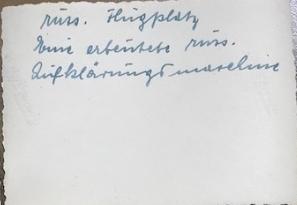 russ. Flugplatz
Eine erbeutete russ.
Aufklärungsmaschine